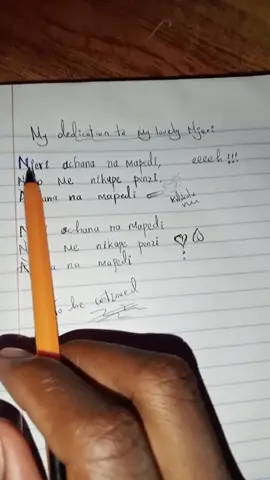 My dedication to my lovely Njeri
Njeri achana na Mapedi, eeeeh !!!
Me nikupe penzi,
na mapedi
achana na Mapedi
Me nikupe penzi
na mapedi
to be